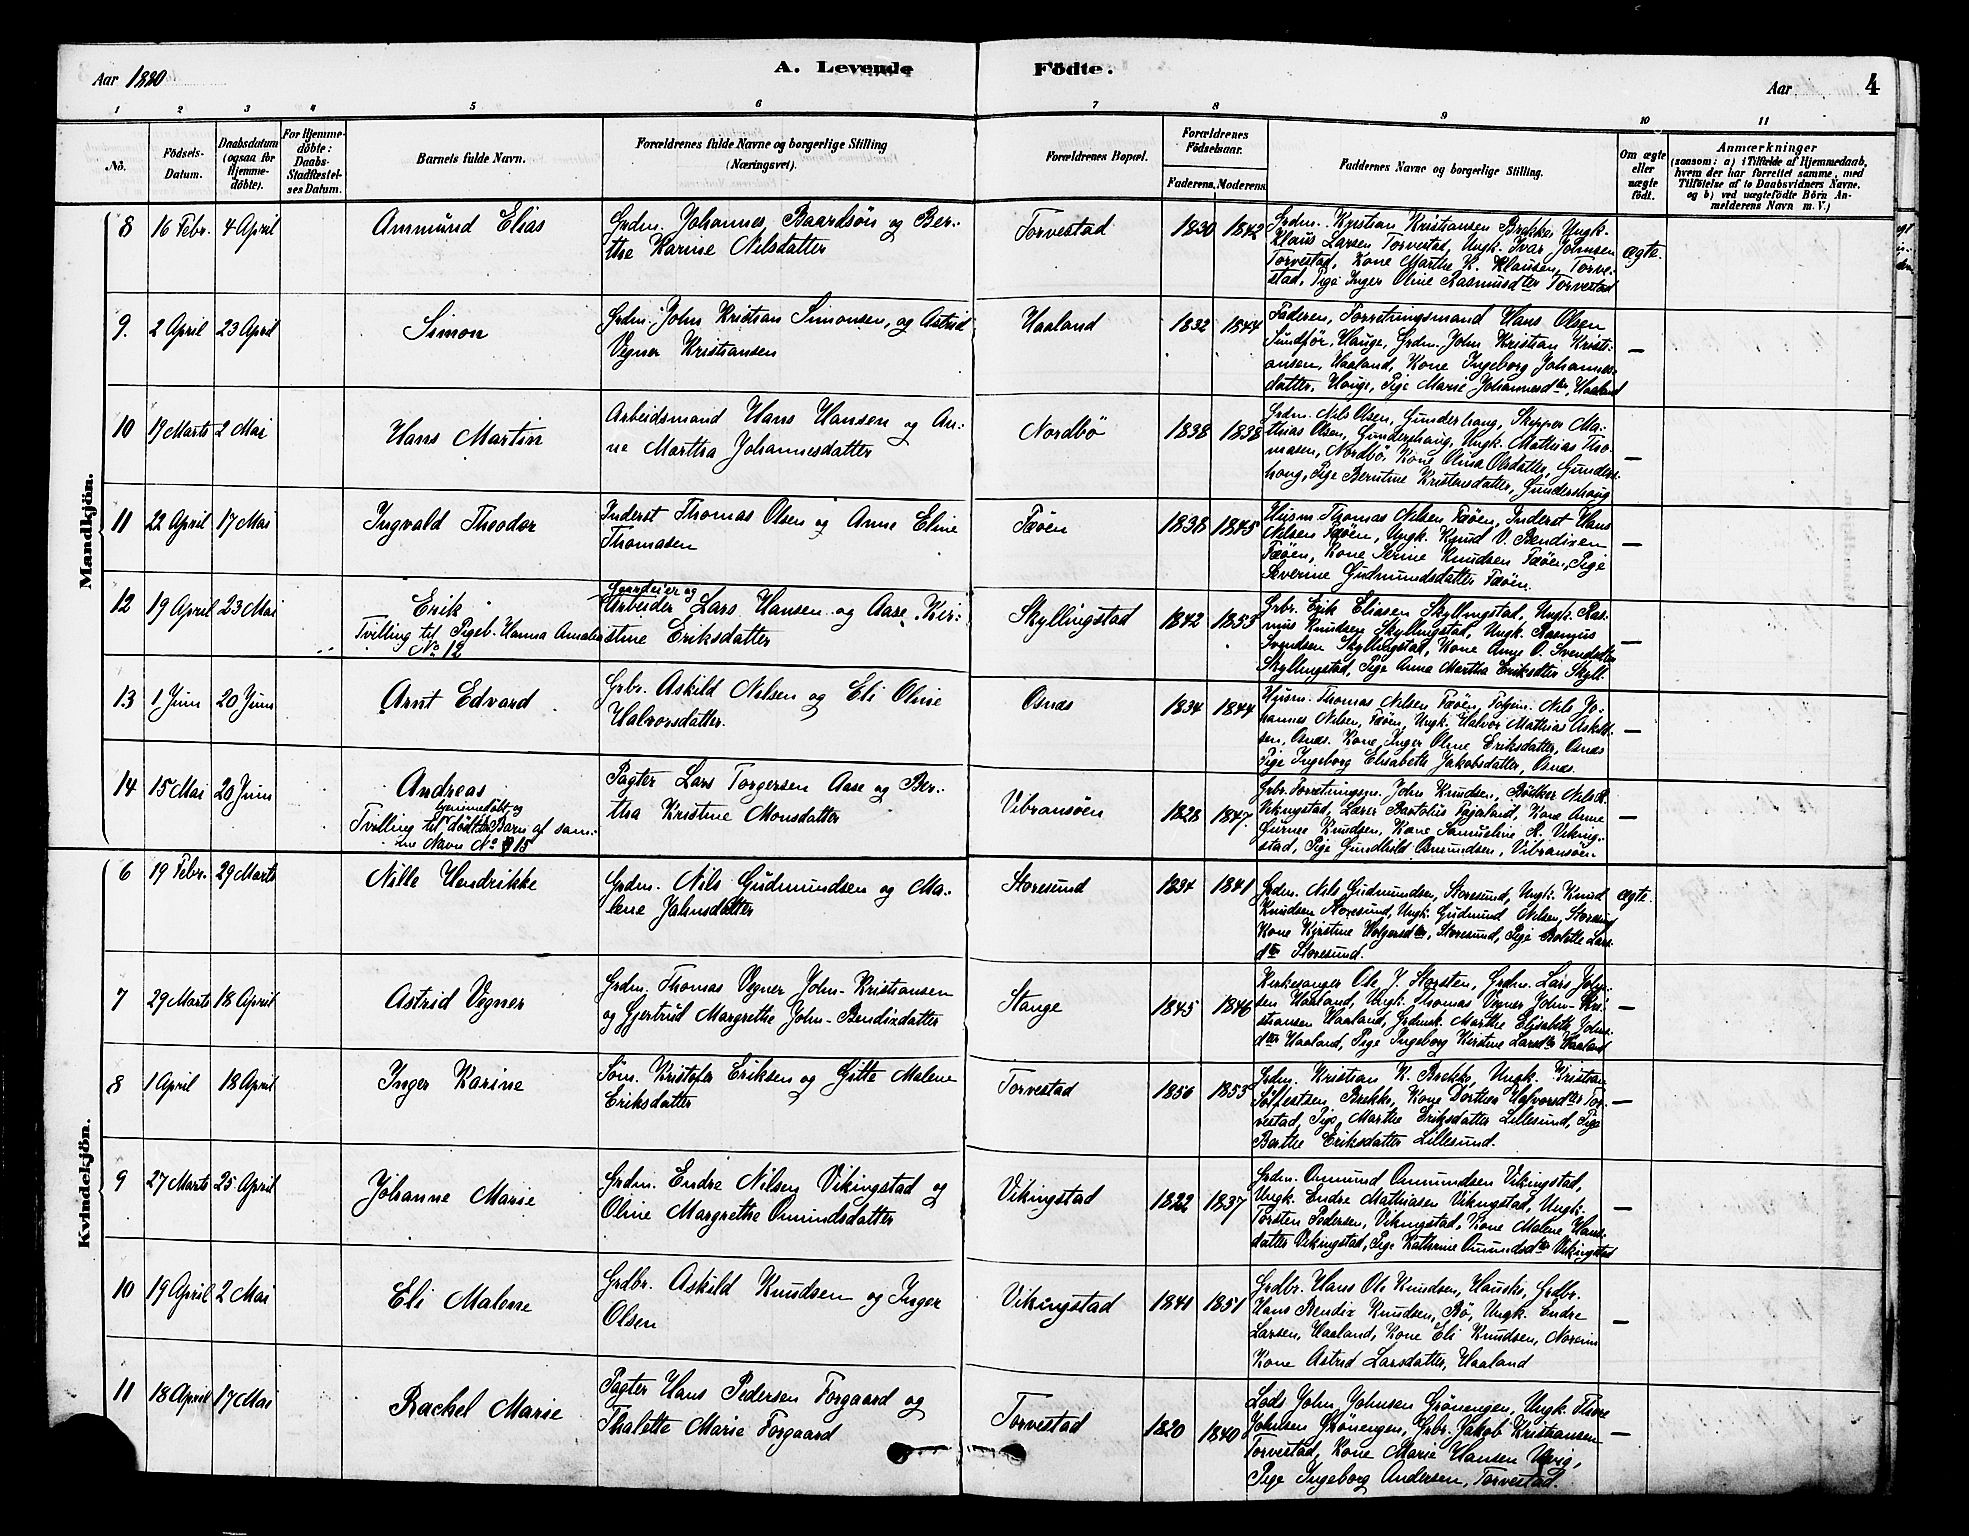 Aar 1880
A. Levende Födte.
Aar 4
1 2 3 4 5 6 7 8 9 10 11
No.
Födsels-Datum.
Daabsdatum (ogsaa for Hjemme-döbte).
For Hjemme-döbte: Daabs-Stadfæstel-ses Datum.
Barnets fulde Navn.
Forældrenes fulde Navne og borgerlige Stilling (Næringsvei).
Forældrenes Bopæl.
Forældrenes Födselsaar.
Faderens. Moderens.
Faddernes Navne og borgerlige Stilling.
Om ægte eller uægte födt.
Anmærkninger
(saasom: a) i Tilfælde af Hjemmedaab, hvem der har forrettet samme, med Tilföielse af to Daabsvidners Navne, og b) ved uægtefödte Börn Anmelderens Navn m. V.)
Mandkjön.
8 16 Febr. 4 April Ammund Elias
Grdm. Johannes Baardsön og Ber-
the Karine Nilsdatter
Torvestad 1830 1842
Grdm. Kristian Kristiansen Brekke, Ungk.
Klaus Larsen Torvestad, Ungk. Ivar Johnsen
Torvestad, Kone Marthe K. Klausen, Torve-
stad, Pige Inger Oline Rasmusdtr Torvestad
ægte.
9. 2 April 23 April Simon
Grdm. John Kristian Simonsen, og Astrid
Vegner Kristiansen
Haaland 1832 1844
Faderen, Forretningsmand Hans Olsen
Sundför, Hauge, Grdm. John Kristian Kristi-
ansen, Haaland, Kone Ingeborg Johannes-
datter, Hauge, Pige Marie Johannesdtr, Haaland
—
10 19 Marts 2 Mai Hans Martin
Arbeidsmand Hans Hansen og An-
ne Martha Johannesdatter
Nordbö 1838 1838
Grdm. Nils Olsen, Gunderhaug, Skipper Ma-
thias Olsen, Gundershaug, Ungk. Mathias Tho-
masen, Nordbö, Kone Olina Olsdatter, Gunders-
haug, Pige Berntine Kristensdatter, Gundershaug
—
11 22 April 17 Mai Ingvald Theodor
Inderst Thomas Olsen og Anne Eline
Thomasen
Fæöen 1838 1845
Husm. Thomas Nilsen Fæöen, Inderst Hans
Nilsen Fæöen, Ungk. Knud V. Bendixen
Fæöen, Kone Serine Knudsen Fæöen, Pige
Severine Gudmundsdatter Fæöen.
—
12 19 April 23 Mai Erik
Tvilling til Pigeb. Hanna Amalia
No 12
Gaardeier og
Arbeider Lars Hansen og Aase Kri-
stine Eriksdatter
Skyllingstad 1842 1853
Grbr. Erik Eliasen Skyllingstad, Ungk. Ras-
mus Knudsen Skyllingstad, Ungk. Rasmus
Svendsen Skyllingstad, Kone Anne O. Svendsdtter
Skyllingstad, Pige Anna Martha Eriksdtter Skyll.
—
13 1 Juni 20 Juni Arnt Edvard
Grbr. Askild Nilsen og Eli Oline
Halvorsdatter.
Osnæs 1834 1844
Husm. Thomas Nilsen Fæöen, Nils Jo-
hannes Nilsen, Fæöen, Ungk. Halvor Mathias Askild-
sen, Osnæs. Kone Inger Oline Eriksdatter, Osnæs
Pige Ingeborg Elisabeth Jakobsdatter, Osnæs.
—
14 15 Mai 20 Juni Andreas
hjemmedöbt og
Tvilling til död Barn af sam-
me Navn No 15
Pagter Lars Torgersen Aase og Ber-
tha Kristine Monsdatter
Vibransöen 1828 1847.
Grbr. Forretningsm. John Knudsen, Bödker Nils R.
Vikingstad, Lærer Bartolius Fagaland, Kone Anne
Gurine Knudsen, Kone Samueline R. Viking-
stad, Pige Gundhild Omundsen, Vibransöen
—
Kvindekjön.
6 19 Febr. 29 Marts Nille Hendrikke
Grdm. Nils Gudmundsen og Ma-
lene Jahnsdatter
Storesund 1834 1841
Grdm. Nils Gudmundsen, Storesund, Ungk. Knud
Knudsen Storesund, Ungk. Gudmund Nilsen, Storesund
Kone Kirstine Holgersdtr, Storesund, Pige Bolette Lars-
dtr Storesund.
ægte.
7 29 Marts 18 April Astrid Vegner
Grdm. Thomas Vegner John-Kristiansen
og Gjertrud Margrethe John-Bendixdatter
Stange 1845 1846
Kirkesanger Ole J. Storsten, Grdm. Lars John-
sen Haaland, Ungk. Thomas Vegner John-Kri-
stiansen Haaland, Grdmk. Marthe Elisabeth Johns-
dtr Haaland, Pige Ingeborg Kirstine Larsdtr Haaland
—
8 1 April 18 April Inger Karine
Söm. Kristofer Eriksen og Gitte Malene
Eriksdatter
Torvestad 1856 1853
Grdm. Kristian K. Brekke, Ungk. Kristian
Sölfestsen Brekke, Kone Dorthea Halvorsdtr Tor-
vestad, Pige Marthe Eriksdatter Lillesund, Pige
Berthe Eriksdatter Lillesund.
—
9 27 Marts 25 April Johanne Marie
Grdm. Endre Nilsen Vikingstad og
Oline Margrethe Omundsdatter
Vikingstad 1822 1837
Grdm. Omund Omundsen Vikingstad,
Ungk. Endre Mathiasen Vikingstad, Ungk.
Torsten Pedersen, Vikingstad, Kone Malene Hans-
datter Vikingstad, Pige Kathrine Omundsdtr Vikingstad
—
10 19 April 2 Mai Eli Malene
Grdbr. Askild Knudsen og Inger
Olsen
Vikingstad 1841 1851
Grdbr. Hans Ole Knudsen, Hauske, Grdbr.
Hans Bendix Knudsen, Bö, Ungk. Endre
Larsen, Haaland, Kone Eli Knudsen, Noreim
Kone Astrid Larsdatter, Haaland
—
11 18 April 17 Mai Rachel Marie
Pagter Hans Pedersen Forgaard og
Thalette Marie Forgaard
Torvestad 1820 1840
Lods John Johnsen Grönengen, Ungk. Thore
Johnsen Grönengen, Grbr. Jakob Kristiansen
Torvestad, Kone Marie Hansen Utvig,
Pige Ingeborg Andersen, Torvestad.
—